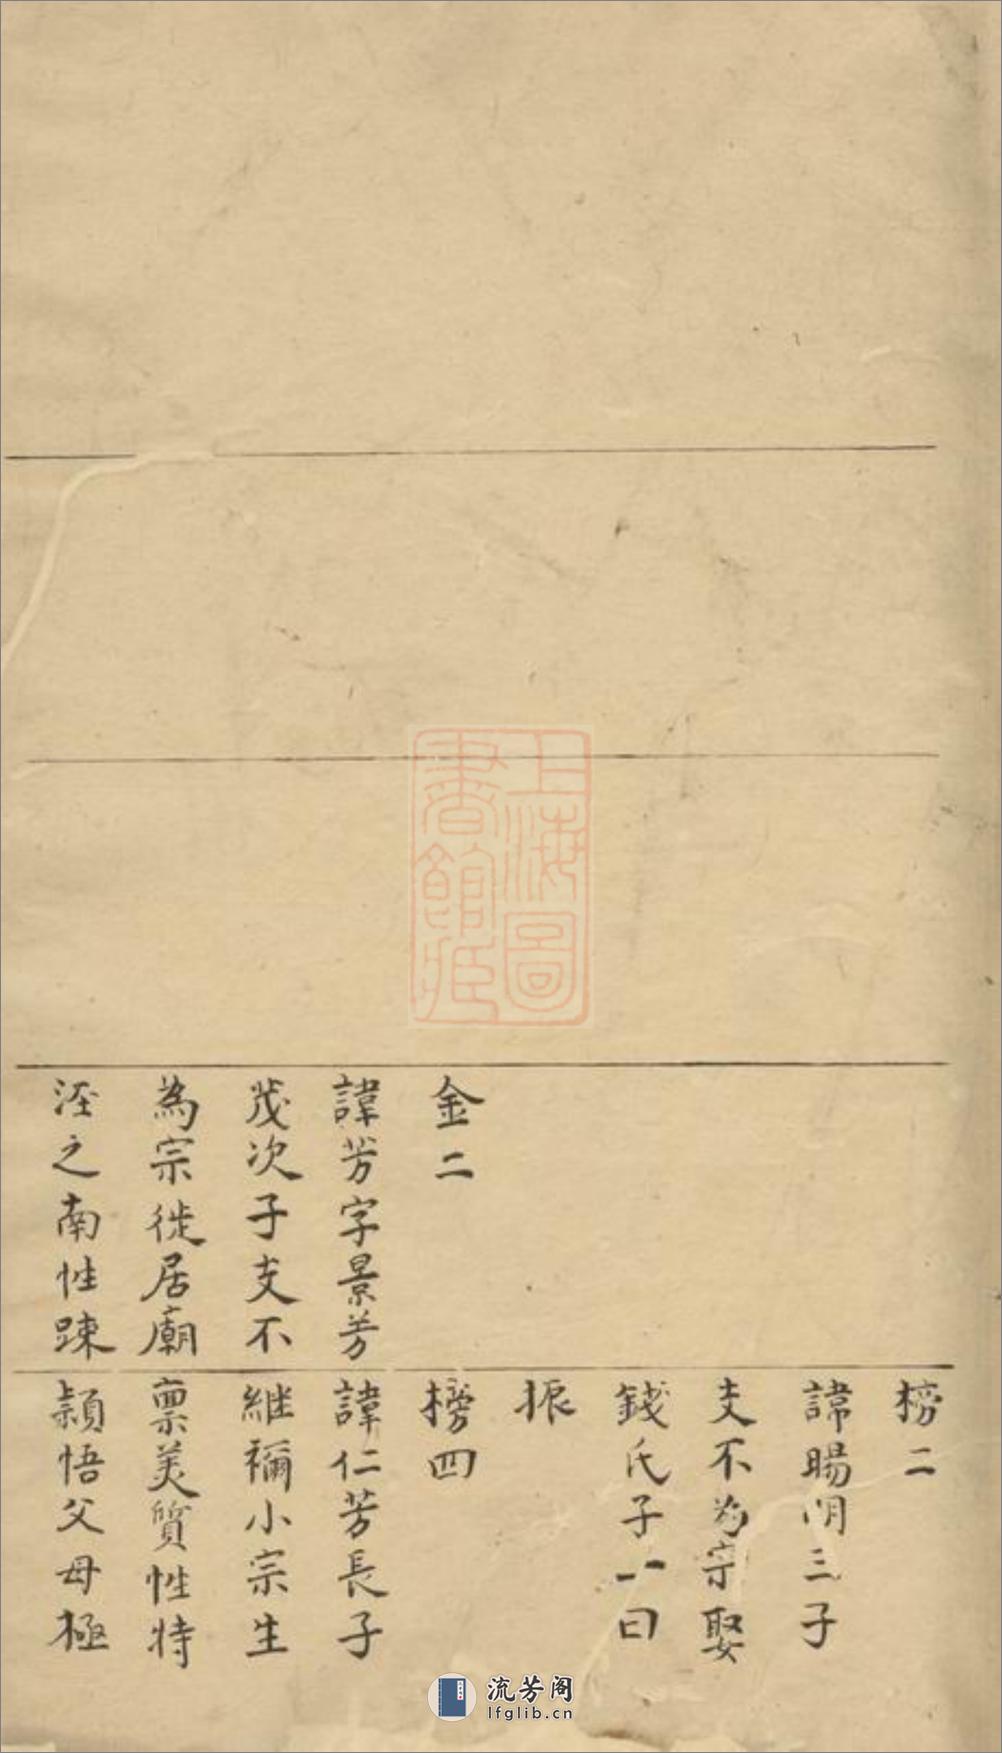 金二
諱芳字景芳
茂次子支不
為宗徙居廟
涇之南性踈
榜二
諱暘明三子
支不為宗娶
錢氏子一曰
振
榜四
諱仁芳長子
継禰小宗生
禀美質性特
頴悟父母極
上海圖
書館藏
流芳阁
lfglib.cn